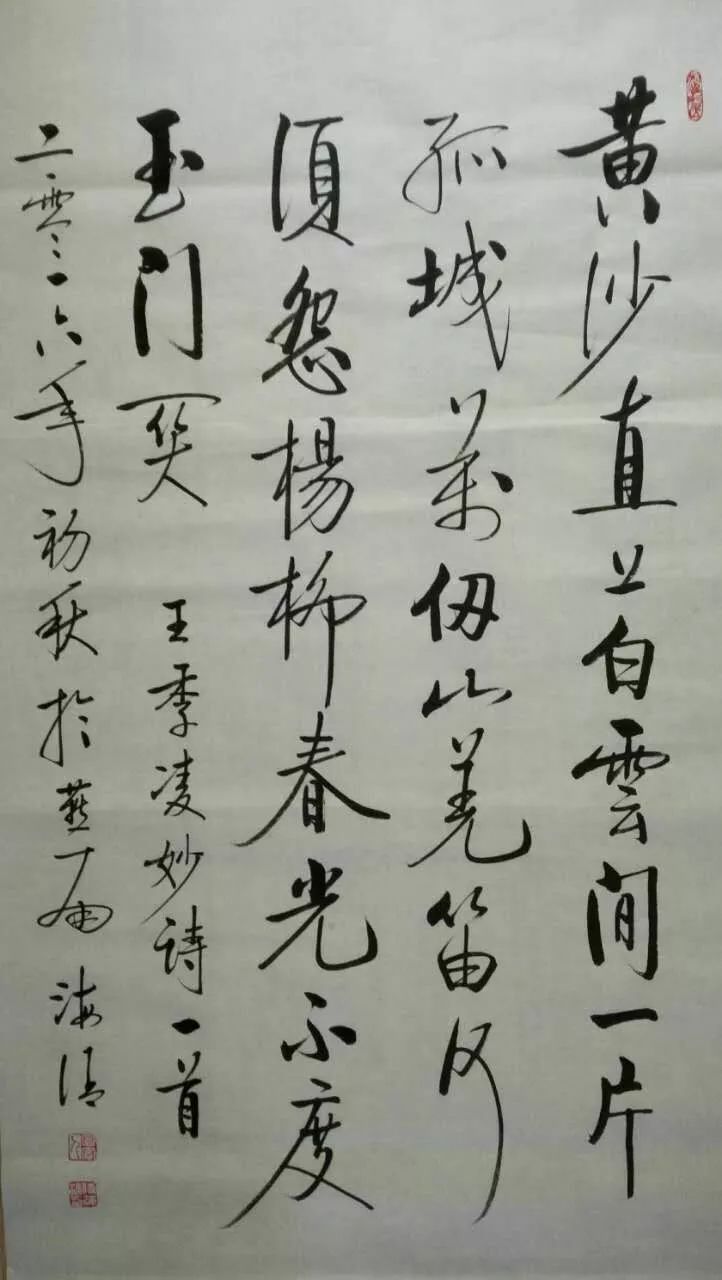 黄沙直上白雲间一片
孤城萬仞山羌笛何
須怨楊柳春光不度
玉门関 王季凌妙詩一首
二零一六年初秋於燕届 海清